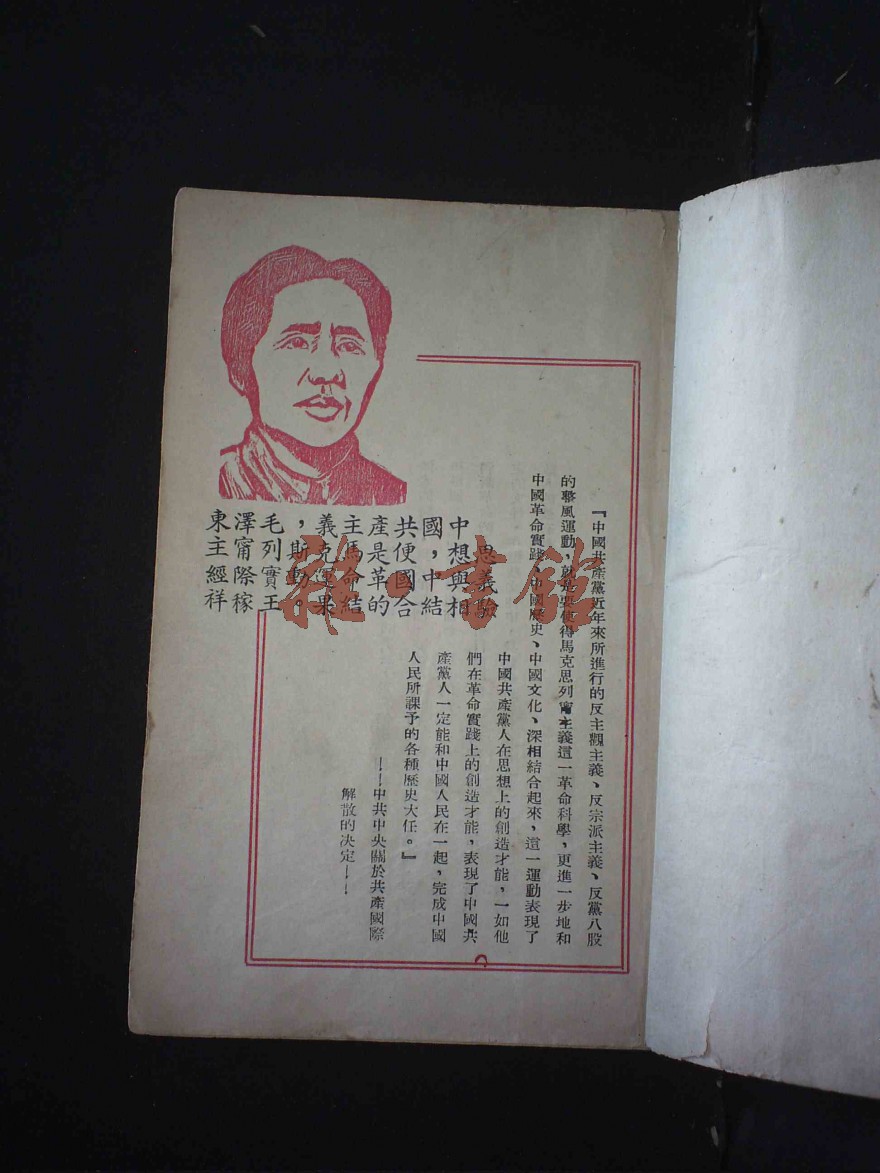 『中國共產黨近年來所進行的反主觀主義、反宗派主義、反黨八股
的整風運動，就是要使得馬克思列甯主義這一革命科學，更進一步地和
中國革命實踐、中國歷史、中國文化、深相結合起來，這一運動表現了
中國共產黨人在思想上的創造才能，一如他
們在革命實踐上的創造才能，表現了中國共
產黨人一定能和中國人民在一起，完成中國
人民所課予的各種歷史大任。』
——中共中央關於共產國際
解散的决定——
中國共產主義，毛澤東
思想，便是馬克斯列甯主
義與中國革命運動實際經
驗相結合的結果。王稼祥
雜·書館